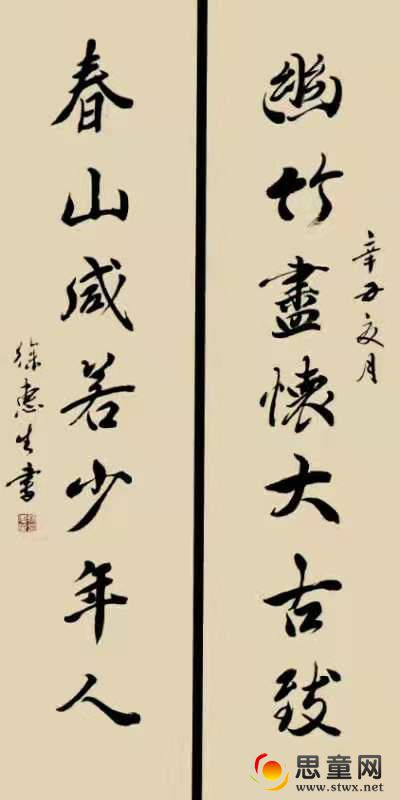 幽竹盡懷大古致
辛丑夏月
春山咸若少年人
徐惠生書
思童网
www.stwx.net